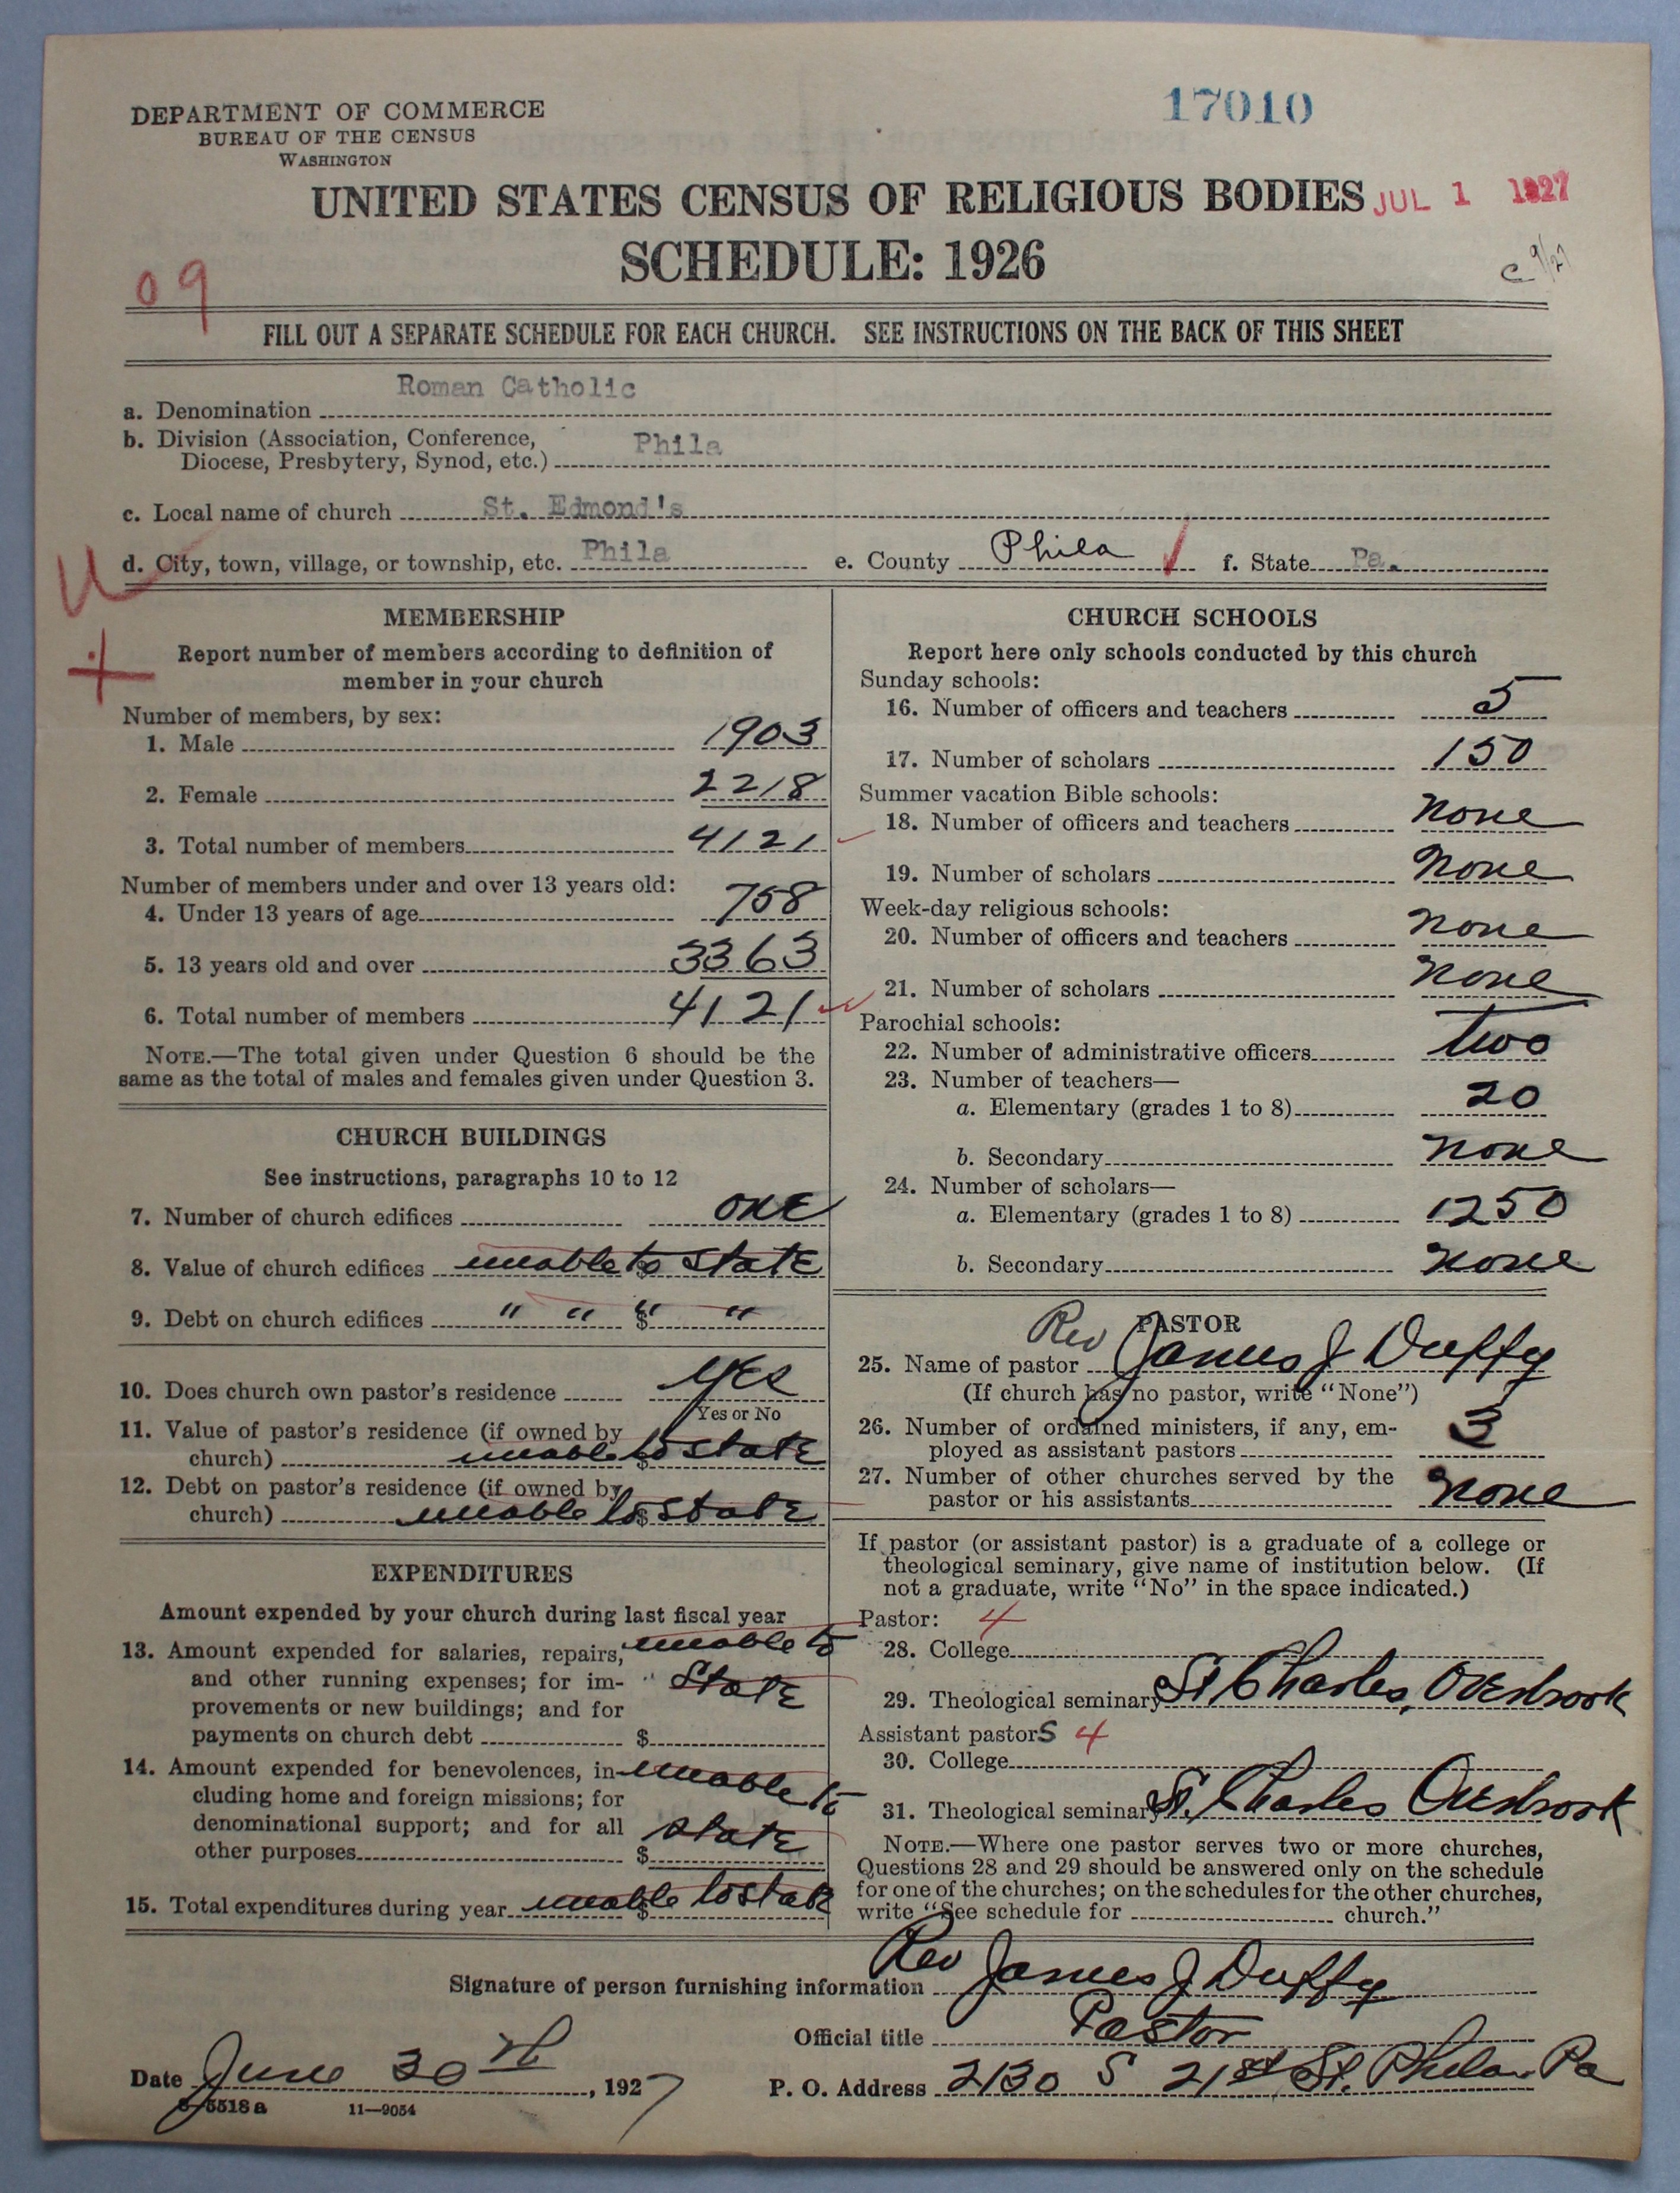 17010
DEPARTMENT OF COMMERCE
BUREAU OF THE CENSUS
WASHINGTON
UNITED STATES CENSUS OF RELIGIOUS BODIES JUL 1 1927
SCHEDULE: 1926
C 9/27
09
FILL OUT A SEPARATE SCHEDULE FOR EACH CHURCH. SEE INSTRUCTIONS ON THE BACK OF THIS SHEET
a. Denomination Roman Catholic
b. Division (Association, Conference,
Diocese, Presbytery, Synod, etc.) Phila
c. Local name of church St. Edmond's
d. City, town, village, or township, etc. Phila e. County Phila f. State Pa.
U
MEMBERSHIP
Report number of members according to definition of
member in your church
Number of members, by sex:
1. Male 1903
2. Female 2218
3. Total number of members 4121
Number of members under and over 13 years old:
4. Under 13 years of age 758
5. 13 years old and over 3363
6. Total number of members 4121
NOTE.—The total given under Question 6 should be the
same as the total of males and females given under Question 3.
CHURCH BUILDINGS
See instructions, paragraphs 10 to 12
7. Number of church edifices one
8. Value of church edifices $ unable to state
9. Debt on church edifices " " $ " "
10. Does church own pastor's residence yes
Yes or No
11. Value of pastor's residence (if owned by
church) $ unable to state
12. Debt on pastor's residence (if owned by
church) $ unable to state
EXPENDITURES
Amount expended by your church during last fiscal year
13. Amount expended for salaries, repairs, unable to
and other running expenses; for im- state
provements or new buildings; and for
payments on church debt $
14. Amount expended for benevolences, in- unable to
cluding home and foreign missions; for
denominational support; and for all state
other purposes $
15. Total expenditures during year $ unable to state
CHURCH SCHOOLS
Report here only schools conducted by this church
Sunday schools:
16. Number of officers and teachers 5
17. Number of scholars 150
Summer vacation Bible schools:
18. Number of officers and teachers none
19. Number of scholars none
Week-day religious schools:
20. Number of officers and teachers none
21. Number of scholars none
Parochial schools:
22. Number of administrative officers two
23. Number of teachers—
a. Elementary (grades 1 to 8) 20
b. Secondary none
24. Number of scholars—
a. Elementary (grades 1 to 8) 1250
b. Secondary none
PASTOR
25. Name of pastor Rev James J Duffy
(If church has no pastor, write "None")
26. Number of ordained ministers, if any, em-
ployed as assistant pastors 3
27. Number of other churches served by the
pastor or his assistants none
If pastor (or assistant pastor) is a graduate of a college or
theological seminary, give name of institution below. (If
not a graduate, write "No" in the space indicated.)
Pastor: 4
28. College
29. Theological seminary St Charles, Overbrook
Assistant pastors 4
30. College
31. Theological seminary St. Charles Overbrook
NOTE.—Where one pastor serves two or more churches,
Questions 28 and 29 should be answered only on the schedule
for one of the churches; on the schedules for the other churches,
write "See schedule for church."
Signature of person furnishing information Rev James J Duffy
Official title Pastor
Date June 30th, 1927 P. O. Address 2130 S 21st St. Phila. Pa
8-5518a 11—9054